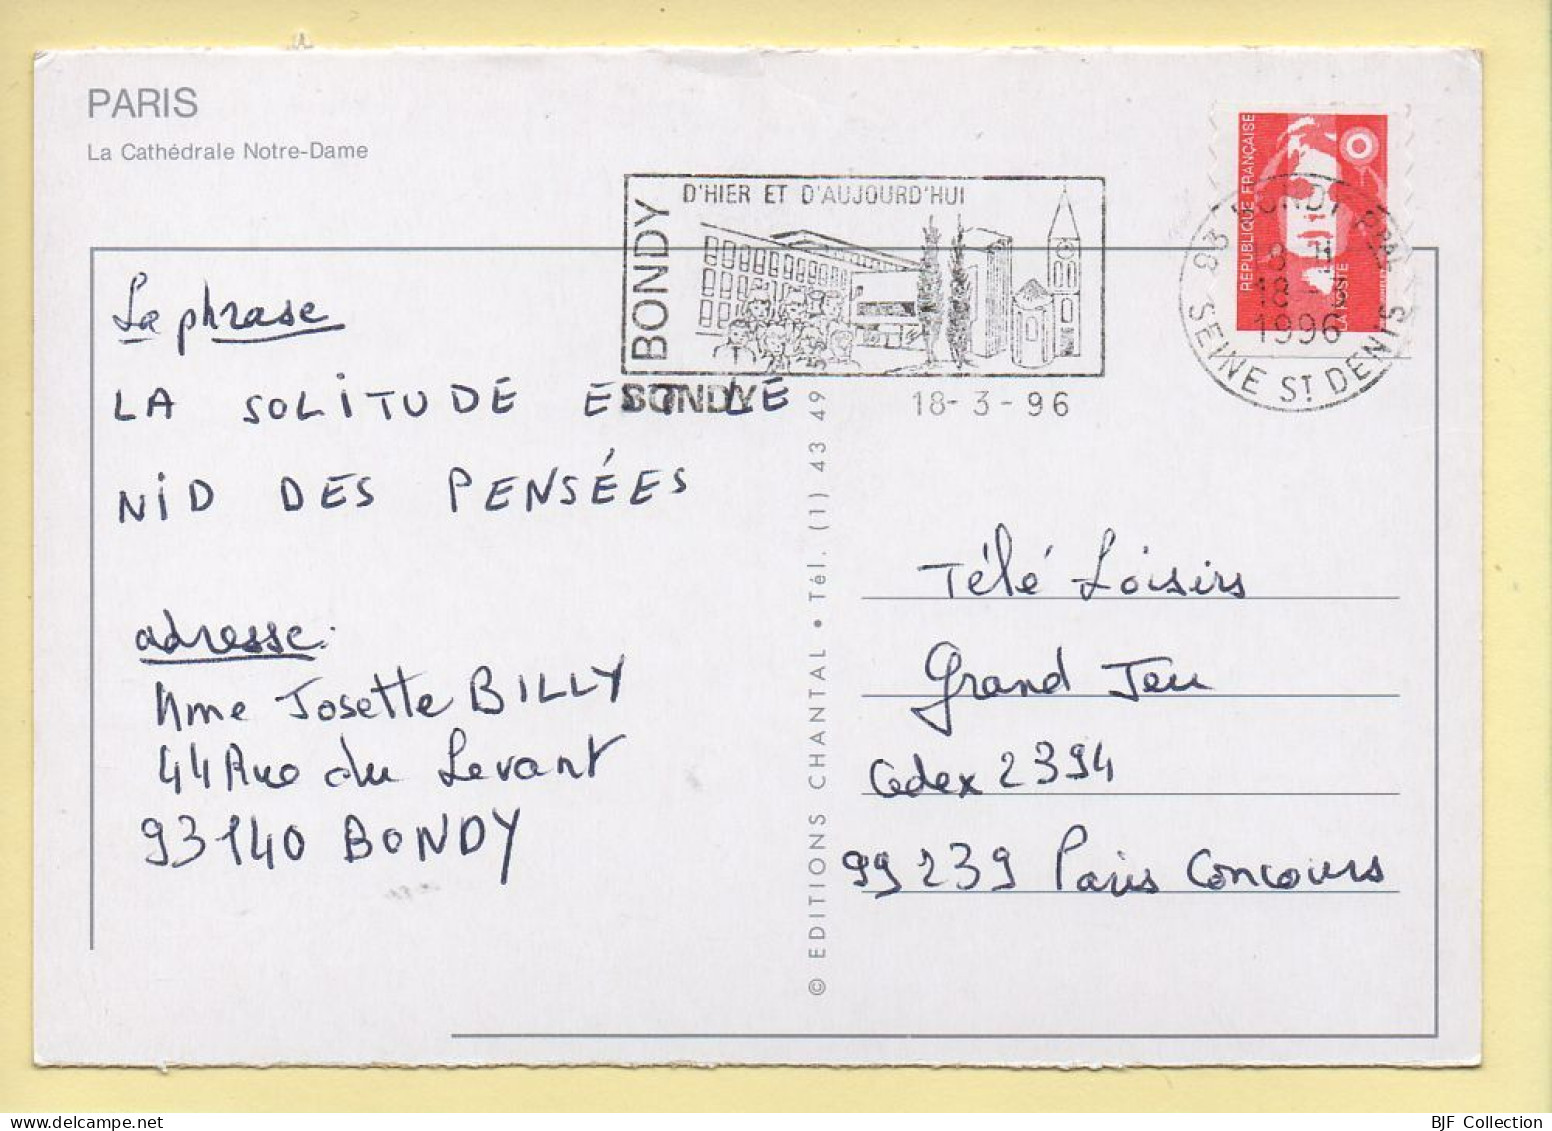 PARIS
La Cathédrale Notre-Dame
BONDY
D'HIER ET D'AUJOURD'HUI
BONDY
18-3-96
RÉPUBLIQUE FRANÇAISE
LA POSTE
93 BONDY PPAL
18 H
18-3
1996
SEINE ST DENIS
La phrase
LA SOLITUDE EST LE
NID DES PENSÉES
adresse:
Mme Josette BILLY
44 Rue du Levant
93140 BONDY
© EDITIONS CHANTAL • Tél. (1) 43 49
Télé Loisirs
Grand Jeu
Cedex 2394
99239 Paris Concours
BJF Collection